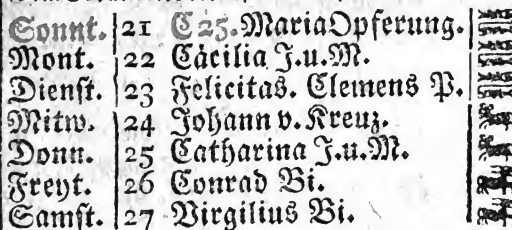 Sonnt. 21 C 25. Maria Opferung.
Mont. 22 Cäcilia J.u.M.
Dienst. 23 Felicitas. Clemens P.
Mitw. 24 Johann v. Kreuz.
Donn. 25 Catharina J.u.M.
Freyt. 26 Conrad Bi.
Samst. 27 Virgilius Bi.